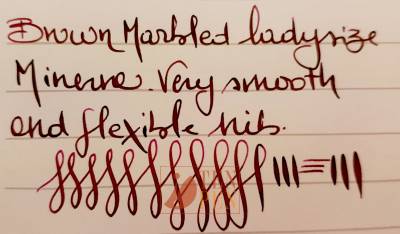 Brown Marbled ladysize
Minerva. Very smooth
and flexible nib.